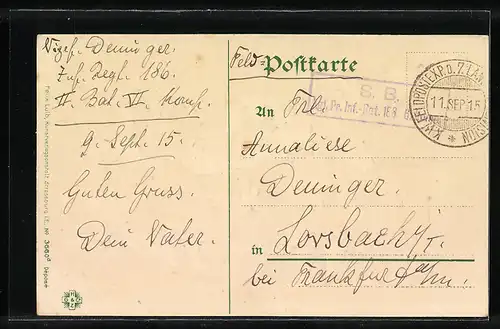 Vizef. Deninger.
Inf. Regt. 186.
II Bat. VI. Komp.
9. Sept. 15.
Guten Gruss.
Dein Vater.
Feld=
Postkarte
S. B.
Inf.-Rgt. 186
K.D. FELDPOSTEXP. D.
11 SEP 15
An Frl.
Annaliese
Deninger.
in Lorsbach i/T.
bei Frankfurt a/m.
Felix Luib, Kunstverlagsanstalt, Strassburg i. E. Nr. 3660